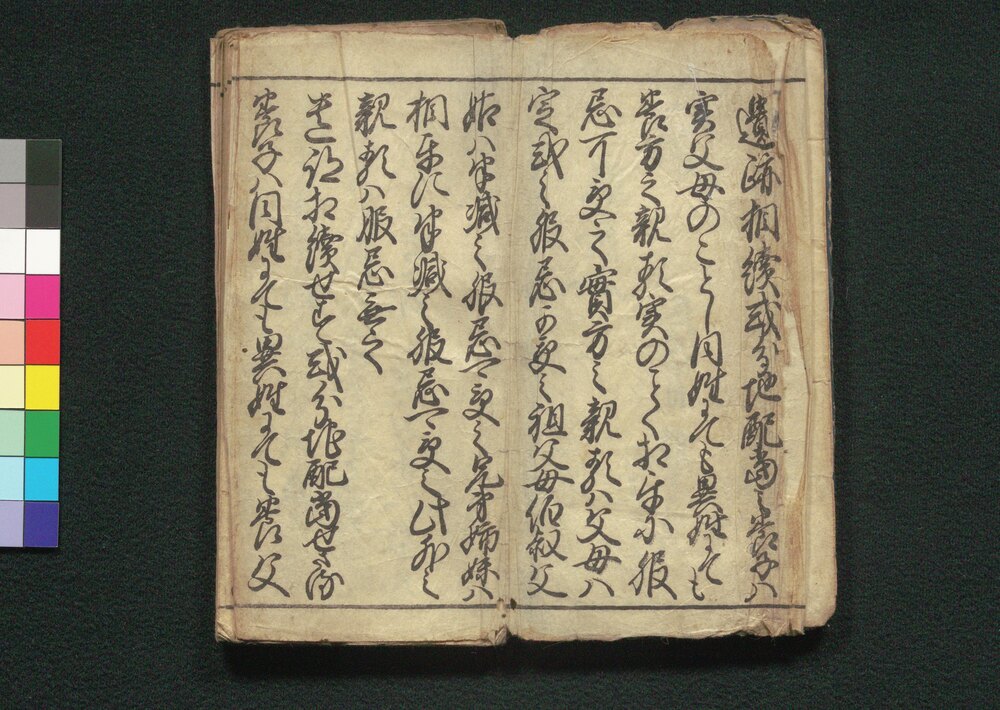 遺跡相續或分地配當之養子ハ
實父母のことし同姓にても異姓にても
養方之親類実のことく相互に服
忌可受之實方之親類ハ父母ハ
定式之服忌可受之祖父母伯叔父
姑ハ半減之服忌可受之兄弟姉妹ハ
相互に半減之服忌可受之此外之
親類ハ服忌無之
遺跡相續せす或分地配當せさる
養子ハ同姓にても異姓にても養父